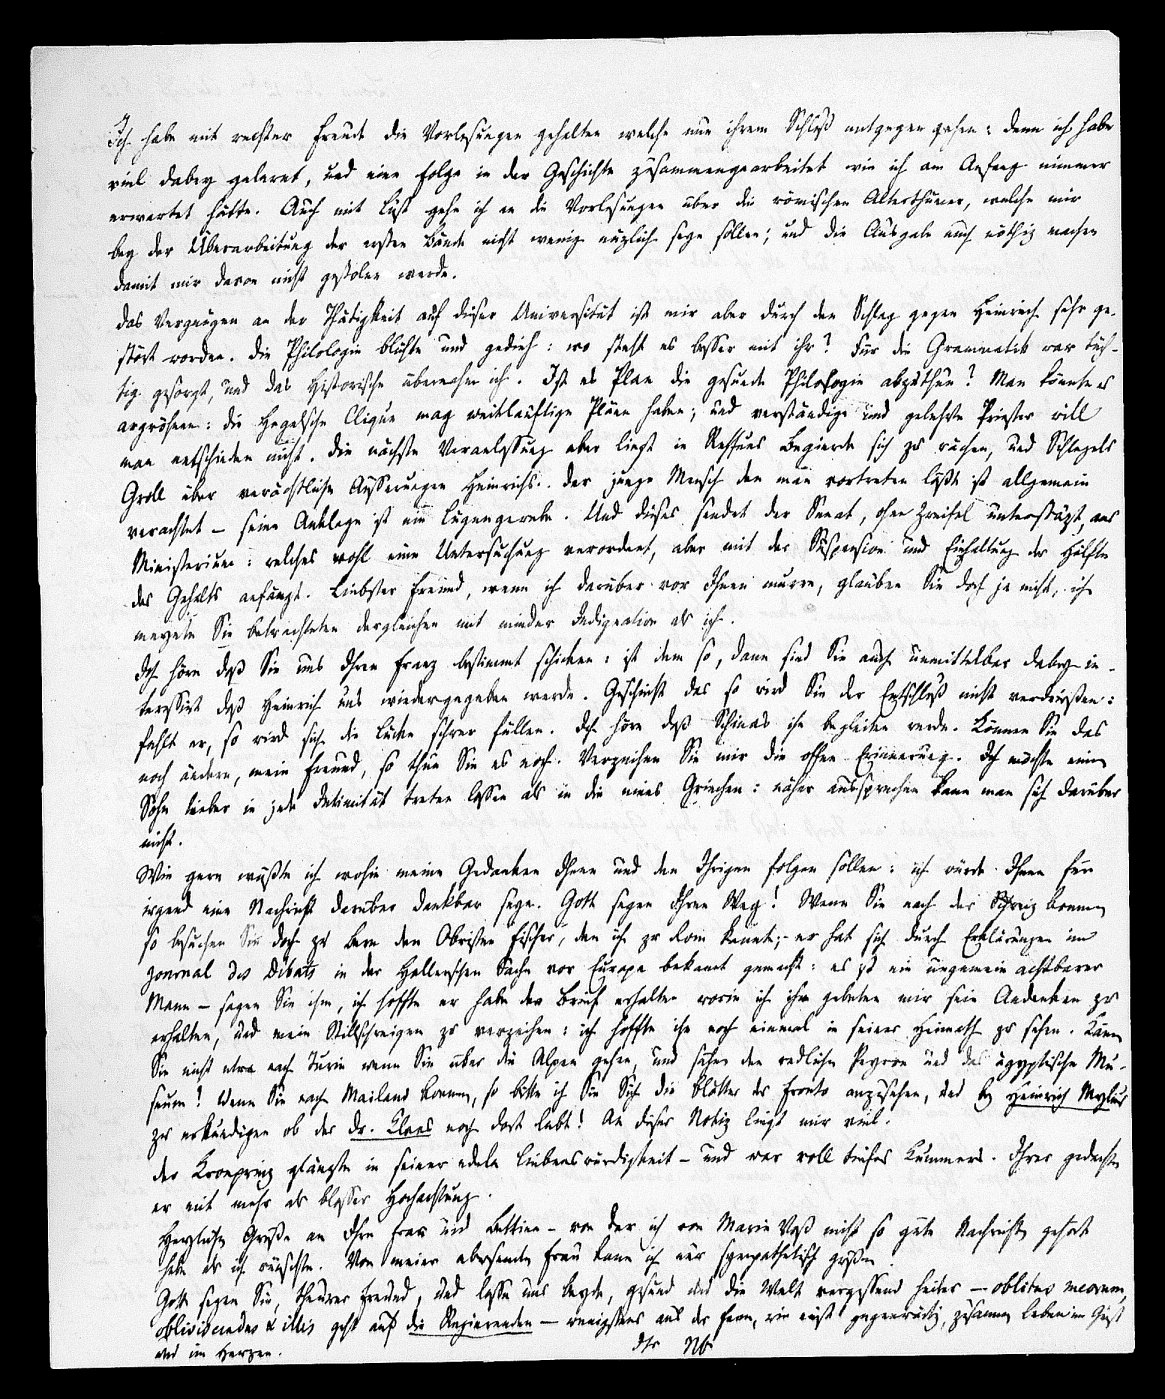 Ich habe mit rechter Freude die Vorlesungen gehalten welche nun ihrem Schluß entgegen gehen: denn ich habe
viel dabey gelernt, und eine Folge in der Geschichte zusammengearbeitet wie ich am Anfang nimmer
erwartet hätte. Auch mit Lust gehe ich an die Vorlesungen über die römischen Alterthümer, welche mir
bey der Überarbeitung der ersten Bände nicht wenig nüzlich seyn sollen; und die Ausgabe auch nöthig machen
damit mir davon nicht gestolen werde.
Das Vergnügen an der Thätigkeit auf dieser Universität ist mir aber durch den Schlag gegen Heinrich sehr ge-
stört worden. Die Philologie blühte und gedieh: wo steht es besser mit ihr? Für die Grammatik war tüch-
tig gesorgt, und das Historische übernahm ich. Ist es Plan die gesunde Philologie abzuthun? Man könnte es
argwöhnen: die Hegelsche Clique mag weitläuftige Pläne haben; und verständige und gelehrte Priester will
man entschieden nicht. Die nächste Veranlassung aber liegt in Rehfues Begierde sich zu rächen, und Schlegels
Groll über verächtliche Äusserungen Heinrichs. Der junge Mensch den man vortreten läßt ist allgemein
verachtet – seine Anklage ist ein Lügengewebe. Und dieses sendet der Senat, ohne Zweifel unterstüzt, ans
Ministerium: welches wohl eine Untersuchung verordnet, aber mit der Suspension und Einhaltung der Hälfte
des Gehalts anfängt. Liebster Freund, wenn ich darüber vor Ihnen murre, glauben Sie doch ja nicht, ich
meynte Sie betrachteten dergleichen mit minder Indignation als ich.
Ich höre daß Sie uns Ihren Franz bestimmt schicken: ist dem so, dann sind Sie auch unmittelbar dabey in-
teressirt daß Heinrich uns wiedergegeben werde. Geschieht das so wird Sie der Entschluß nicht verdrießen:
fehlt er, so wird sich die Lücke schwer füllen. Ich höre daß Schinas ihn begleiten werde. Können Sie das
noch ändern, mein Freund, so thun Sie es noch. Verzeihen Sie mir die offne Erinnerung. Ich möchte einen
Sohn lieber in jede Intimität treten lassen als in die eines Griechen: näher aussprechen kann man sich darüber
nicht.
Wie gern wüßte ich wohin meine Gedanken Ihnen und den Ihrigen folgen sollen: ich würde Ihnen für
irgend eine Nachricht darüber dankbar seyn. Gott segne Ihren Weg! Wenn Sie nach der Schweiz kommen
so besuchen Sie doch zu Bern den Obristen Fischer, den ich zu Rom kannte; er hat sich durch Erklärungen im
Journal des Débats in der Hallerschen Sache vor Europa bekannt gemacht: es ist ein ungemein achtbarer
Mann – sagen Sie ihm, ich hoffte er habe den Brief erhalten worin ich ihn gebeten mir sein Andenken zu
erhalten, und mein Stillschweigen zu verzeihen: ich hoffte ihn noch einmal in seiner Heimath zu sehen. Kämen
Sie nicht etwa nach Turin wenn Sie über die Alpen gehen, und sähen den redlichen Peyron und das ägyptische Mu-
seum! Wenn Sie nach Mailand kommen, so bitte ich Sie Sich die Blätter des Fronto anzusehen, und bey Heinrich Mylius
zu erkundigen ob der Dr. Clees noch dort lebt! An dieser Notiz liegt mir viel.
Der Kronprinz glänzte in seiner edeln Liebenswürdigkeit – und war voll tiefes Kummers. Ihrer gedachte
er mit mehr als blosser Hochachtung.
Herzliche Grüße an Ihre Frau und Bettine – von der ich von Marie Voß nicht so gute Nachrichten gehört
habe als ich wünschte. Von meiner abwesenden Frau kann ich nur sympathetisch grüßen.
Gott segne Sie, theurer Freund, und lasse uns beyde, gesund und die Welt vergessend heiter – oblitus meorum,
obliviscendus et illis geht auf die Regierenden – wenigstens aus der Ferne, wie einst gegenwärtig, zusammen leben im Geist
und im Herzen.
Ihr Nbr